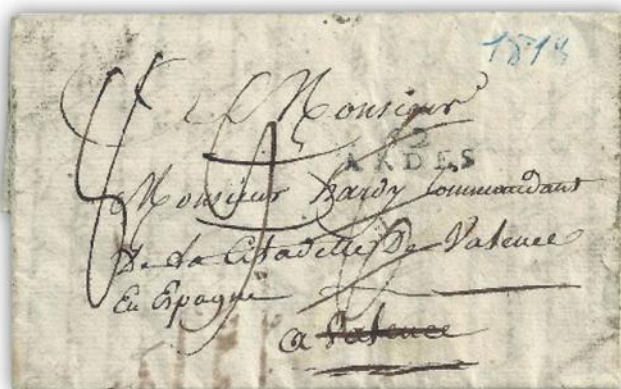 1813
Monsieur
ARDES
Monsieur hardy Commandant
De La Citadelle De Valence
En Epagne
a Valence